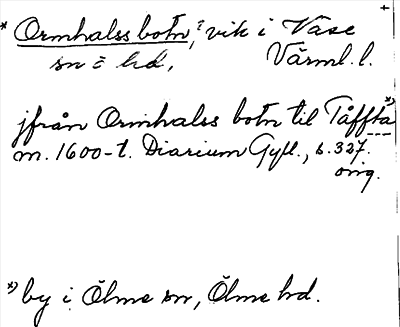 +
* Ormhalss botn, ? vik i Väse
sn = hd, Värml. l.
jfrån Ormhalss botn til Tåffta *)
m. 1600-t. Diarium Gyll., s. 327.
orig.
*) by i Ölme sn, Ölme hd.